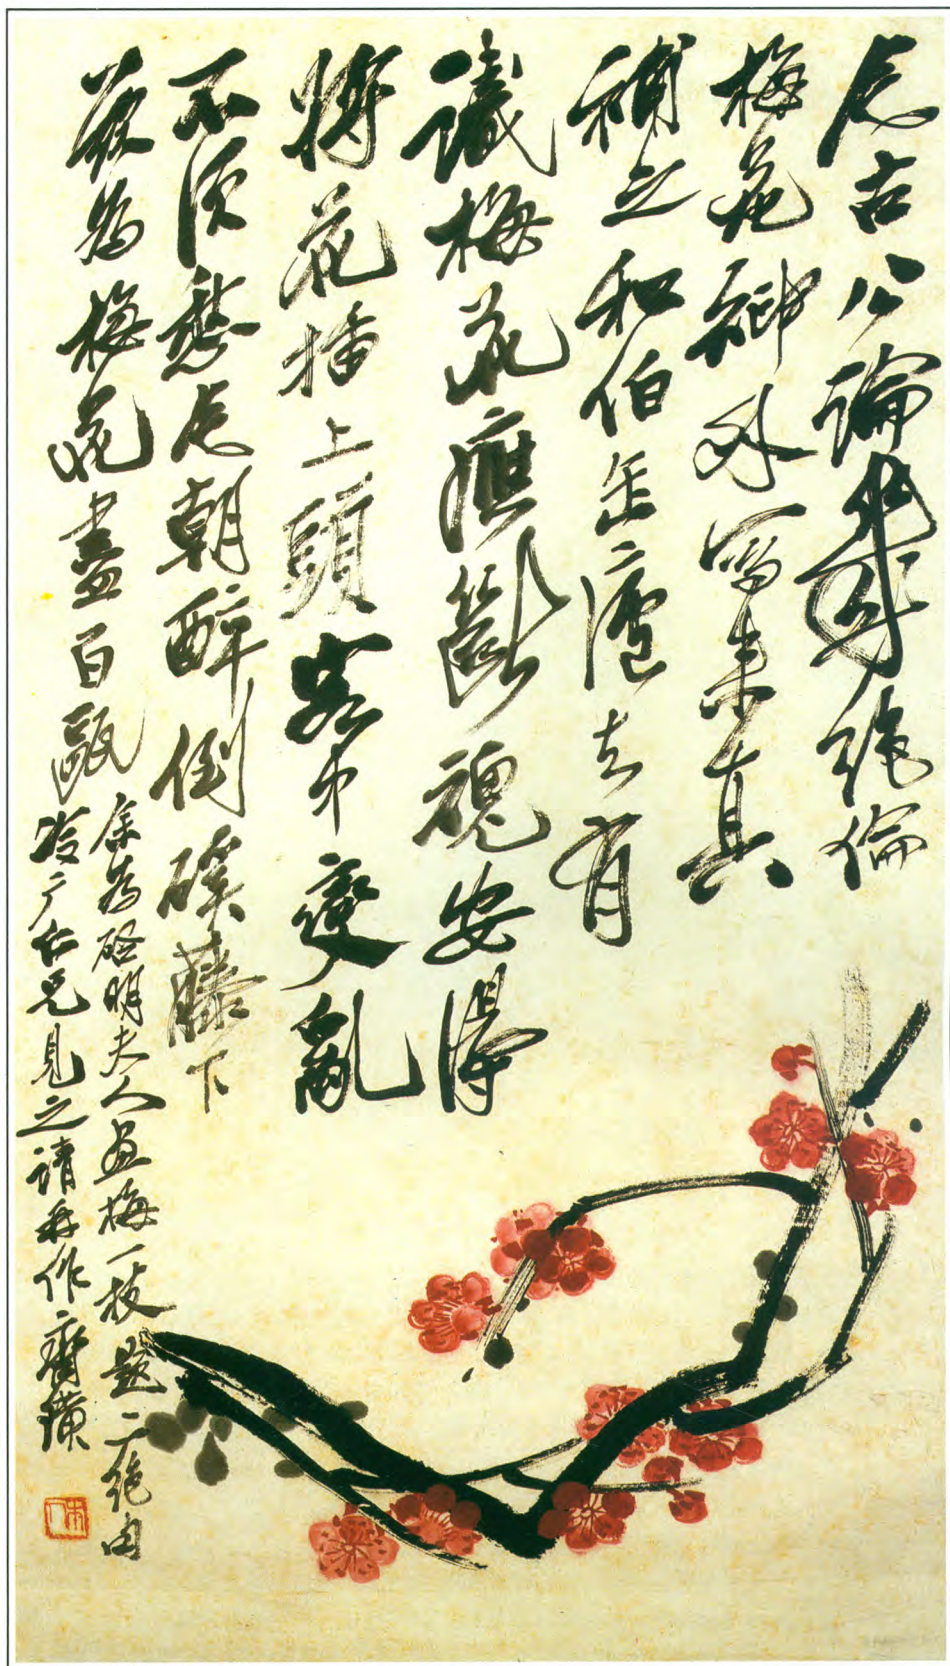 今古公論幾絕倫
梅花神外寫來真
補之和伯缶廬去有
識梅花應斷魂安得
將花插上頭客中變亂
不須愁今朝醉倒磎藤下
為梅花盡百甌
余為啓明夫人画梅一枝題二絕句
冷厂仁兄見之請再作齊璜
木人